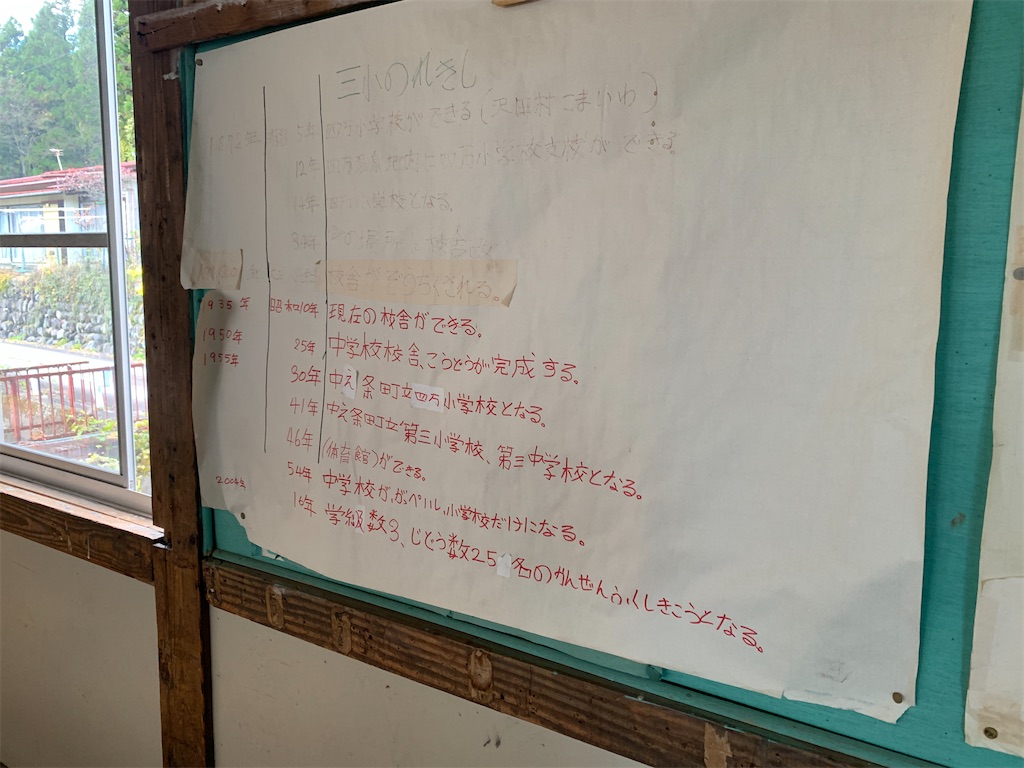 三小のれきし
1872年 明治 5年 四万小学校ができる(沢田村こまいわ)
12年 四万小学校支校ができる
14年 小学校となる。
34年 この場所に校舎
年 校舎がぞうちくされる。
1935年 昭和10年 現在の校舎ができる。
1950年 25年 中学校校舎、こうどうが完成する。
1955年 30年 中之条町立四万小学校となる。
41年 中之条町立第三小学校、第三中学校となる。
46年 (体育館)ができる。
54年 中学校が、がぺいし、小学校だけになる。
2004年 16年 学級数3、じどう数25名のかんぜんふくしきこうとなる。